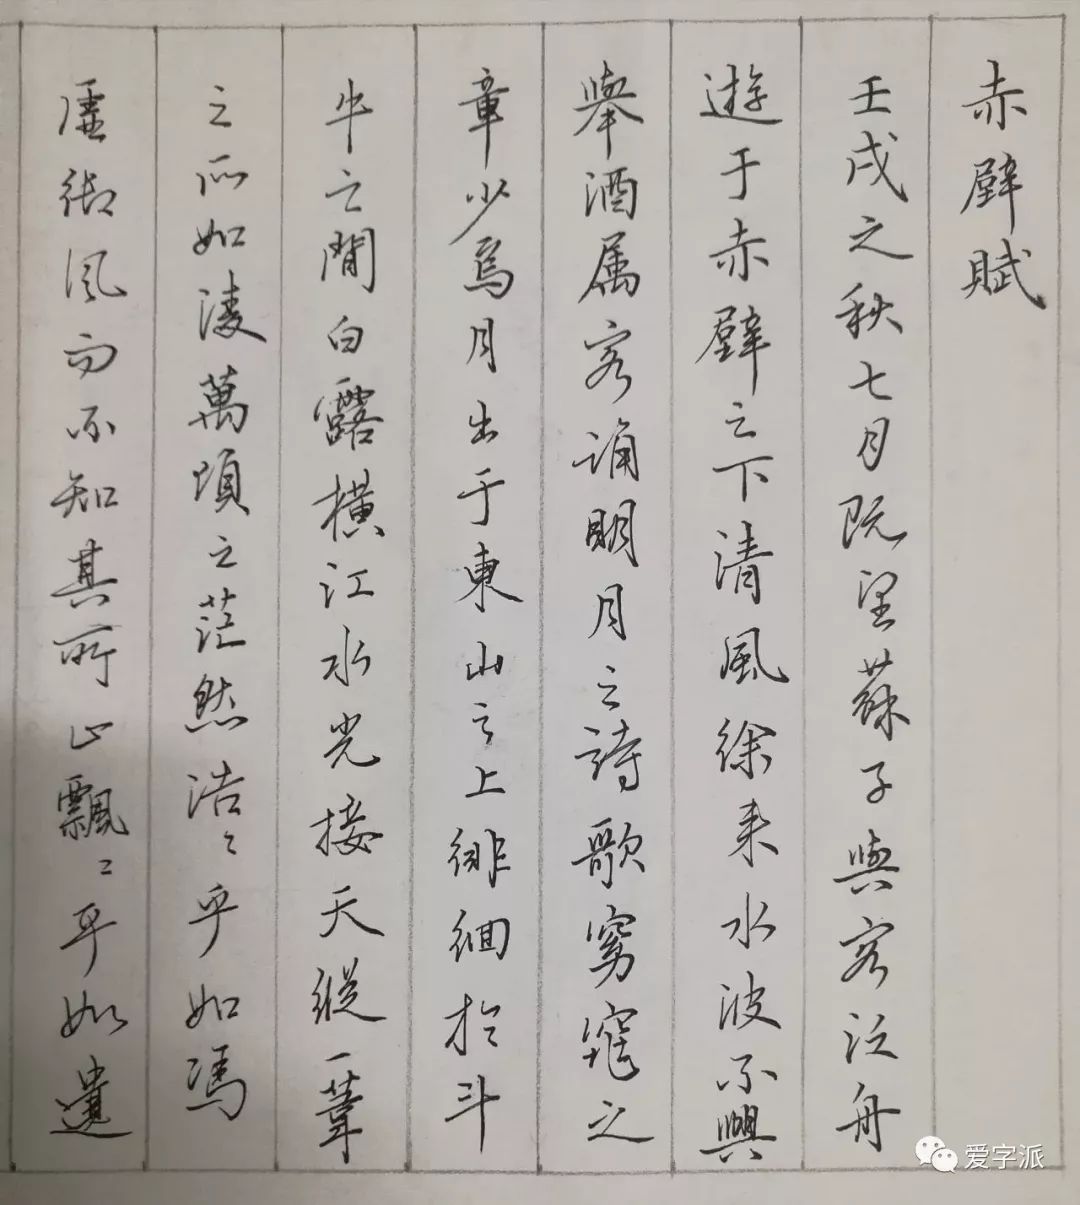 赤壁賦
壬戌之秋七月既望蘇子與客泛舟
遊于赤壁之下清風徐来水波不興
舉酒属客誦明月之詩歌窈窕之
章少焉月出于東山之上徘徊於斗
牛之間白露横江水光接天縱一葦
之所如凌萬頃之茫然浩〻乎如馮
虚御風而不知其所止飄〻乎如遺
爱字派